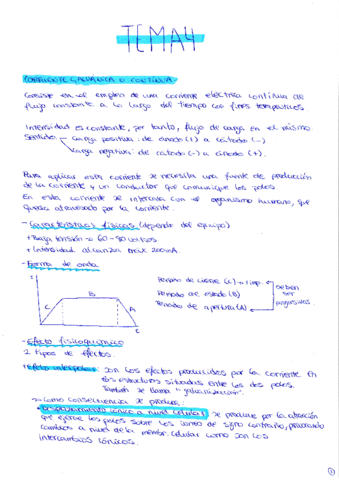 TEMA4
CORRIENTE GALVÁNICA O CONTINUA
Consiste en el empleo de una corriente eléctrica continua de
flujo constante a lo largo del tiempo con fines terapeúticos
Intensidad es constante, por tanto, flujo de carga en el mismo
sentido
Carga positiva: de ánodo (+) a cátodo (-)
Carga negativa: de cátodo (-) a ánodo (+).
Para aplicar esta corriente se necesita una fuente de producción
de la corriente y un conductor que comunique los polos
En esta corriente se intercala con el organismo humano, que
queda atravesado por la corriente.
- Características físicas (depende del equipo)
+ Baja tensión → 60-80 voltios
+ Intensidad alcanza máx 200mA.
- Forma de onda
I
B
C
A
t
Periodo de cierre (C) → Timp.
Periodo de estado (B)
Periodo de apertura (A)
deben
ser
progresivos
- Efecto fisicoquímico
2 tipos de efectos.
+ Efecto interpolar: son los efectos producidos por la corriente en
las estructuras situadas entre los dos polos.
También se llama "galvanización".
→ Como consecuencia se produce:
Desplazamiento iónico a nivel celular: se produce por la atracción
que ejerce los polos sobre los iones de signo contrario, provocando
cambios a nivel de la membr. celular como son los
intercambios iónicos.